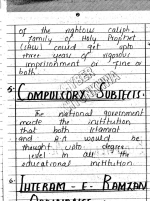 of the rightous caliph,
family of Holy Prophet
(SAW) could get upto
three years of rigorous
imprisonment or fine or
both.
5: COMPULSORY SUBJECTS:
The national government
made the institution
that both islamiat
and P.A would be
thought upto degree
level in all the
educational institution
6: INTERAM - E - RAMZAN